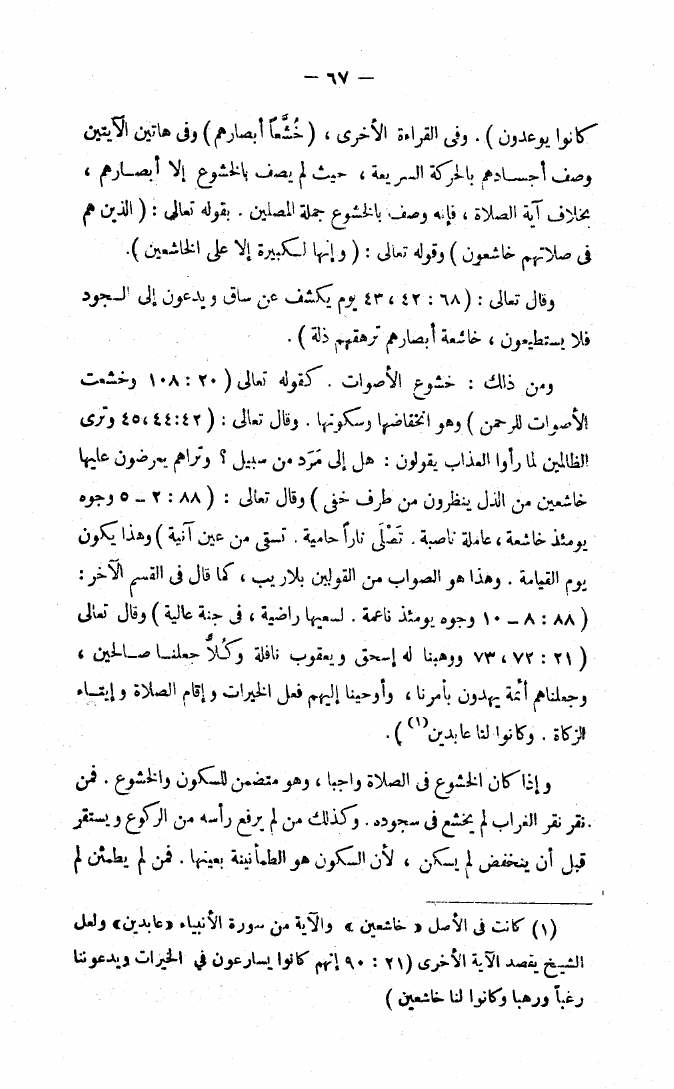 — ٦٧ —
كانوا يوعدون ) . وفى القراءة الأخرى ، ( خُشَّعاً أبصارهم ) وفى هاتين الآيتين
وصف أجسادهم بالحركة السريعة ، حيث لم يصف بالخشوع إلا أبصارهم ،
بخلاف آية الصلاة ، فإنه وصف بالخشوع جملة المصلين . بقوله تعالى : ( الذين هم
فى صلاتهم خاشعون ) وقوله تعالى : ( وإنها لكبيرة إلا على الخاشعين ) .
وقال تعالى : ( ٦٨ : ٤٢ ، ٤٣ يوم يكشف عن ساق ويدعون إلى السجود
فلا يستطيعون ، خاشعة أبصارهم ترهقهم ذلة ) .
ومن ذلك : خشوع الأصوات . كقوله تعالى ( ٢٠ : ١٠٨ وخشعت
الأصوات للرحمن ) وهو انخفاضها وسكوتها . وقال تعالى : ( ٤٢ : ٤٤ ، ٤٥ وترى
الظالمين لما رأوا العذاب يقولون : هل إلى مَرَد من سبيل ؟ وتراهم يعرضون عليها
خاشعين من الذل ينظرون من طرف خفى ) وقال تعالى : ( ٨٨ : ٢ – ٥ وجوه
يومئذ خاشعة ، عاملة ناصبة . تَصْلَى ناراً حامية . تسقى من عين آنية ) وهذا يكون
يوم القيامة . وهذا هو الصواب من القولين بلا ريب ، كما قال فى القسم الآخر :
( ٨٨ : ٨ – ١٠ وجوه يومئذ ناعمة . لسعيها راضية ، فى جنة عالية ) وقال تعالى
( ٢١ : ٧٢ ، ٧٣ ووهبنا له إسحق ويعقوب نافلة وكُلاًّ جعلنا صالحين ،
وجعلناهم أئمة يهدون بأمرنا ، وأوحينا إليهم فعل الخيرات وإقام الصلاة وإيتاء
الزكاة . وكانوا لنا عابدين (١) ) .
وإذا كان الخشوع فى الصلاة واجبا ، وهو متضمن للسكون والخشوع . فمن
نقر نقر الغراب لم يخشع فى سجوده . وكذلك من لم يرفع رأسه من الركوع ويستقر
قبل أن ينخفض لم يسكن ، لأن السكون هو الطمأنينة بعينها . فمن لم يطمئن لم
(١) كانت فى الأصل « خاشعين » والآية من سورة الأنبياء «عابدين» ولعل
الشيخ يقصد الآية الأخرى ( ٢١ : ٩٠ إنهم كانوا يسارعون في الخيرات ويدعوننا
رغباً ورهبا وكانوا لنا خاشعين )